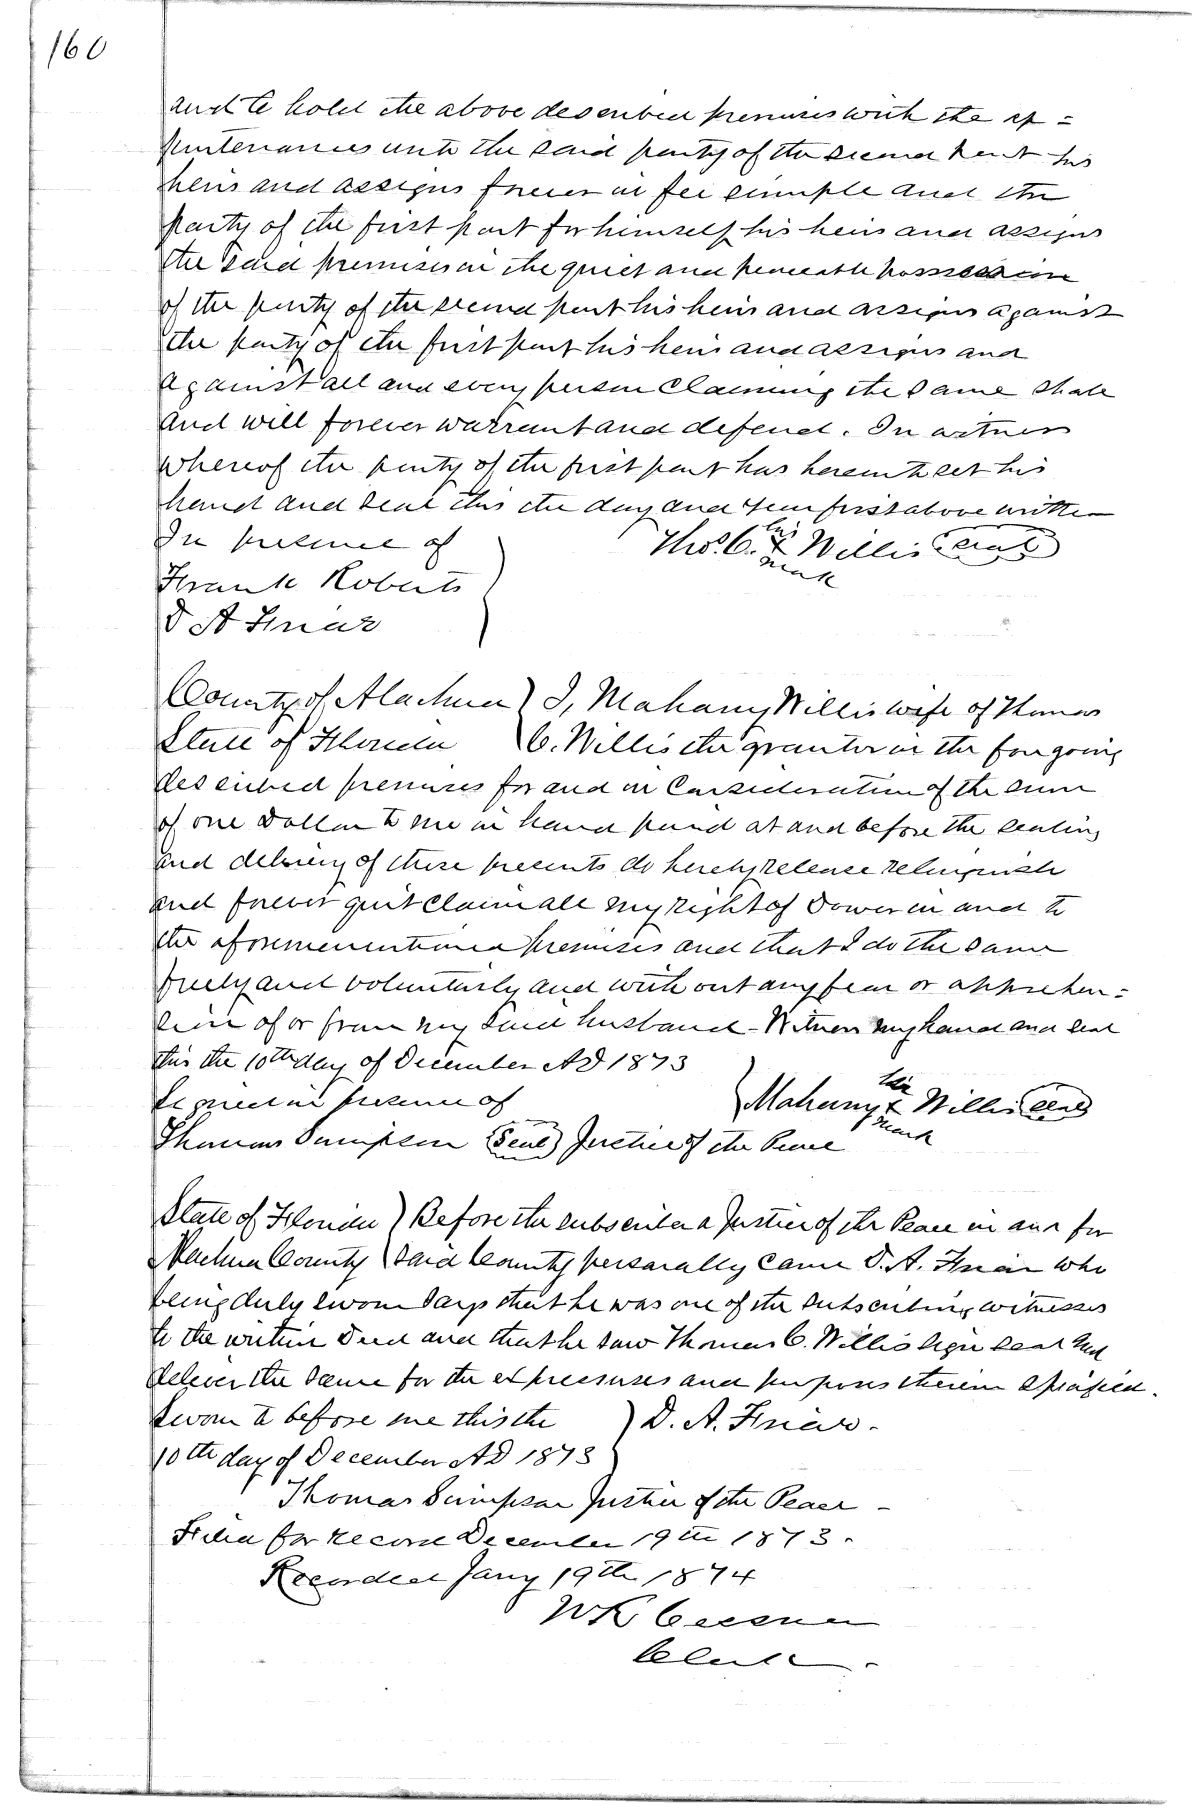 160
and to hold the above described premises with the ap=
purtenances unto the said party of the second part his
heirs and assigns forever in fee simple and the
party of the first part for himself his heirs and assigns
the said premises in the quiet and peaceable possession
of the party of the second part his heirs and assigns against
the party of the first part his heirs and assigns and
against all and every person claiming the same shall
and will forever warrant and defend. In witness
whereof the party of the first part has hereunto set his
hand and seal this the day and year first above written
In presence of
Frank Roberts
D A Friar
Thos. C. his X mark Willis (seal)
County of Alachua ) I, Mahany Willis wife of Thomas
State of Florida ) C. Willis the grantor in the foregoing
described premises for and in Consideration of the sum
of one Dollar to me in hand paid at and before the sealing
and delivery of these presents do hereby release relinquish
and forever quit claim all my right of Dower in and to
the aforementioned premises and that I do the same
freely and voluntarily and without any fear or apprehen=
sion of or from my said husband - Witness my hand and seal
this the 10th day of December AD 1873
Signed in presence of ) Mahany her X mark Willis (seal)
Thomas Simpson (Seal) Justice of the Peace
State of Florida ) Before the subscriber a Justice of the Peace in and for
Alachua County ) said County personally came D. A. Friar who
being duly sworn says that he was one of the subscribing witnesses
to the within Deed and that he saw Thomas C. Willis sign seal and
deliver the same for the express uses and purposes therein specified.
Sworn to before me this the ) D. A. Friar.
10th day of December AD 1873
Thomas Simpson Justice of the Peace -
Filed for record December 19th 1873.
Recorded Jany 19th 1874
W K Cessna
Clerk.